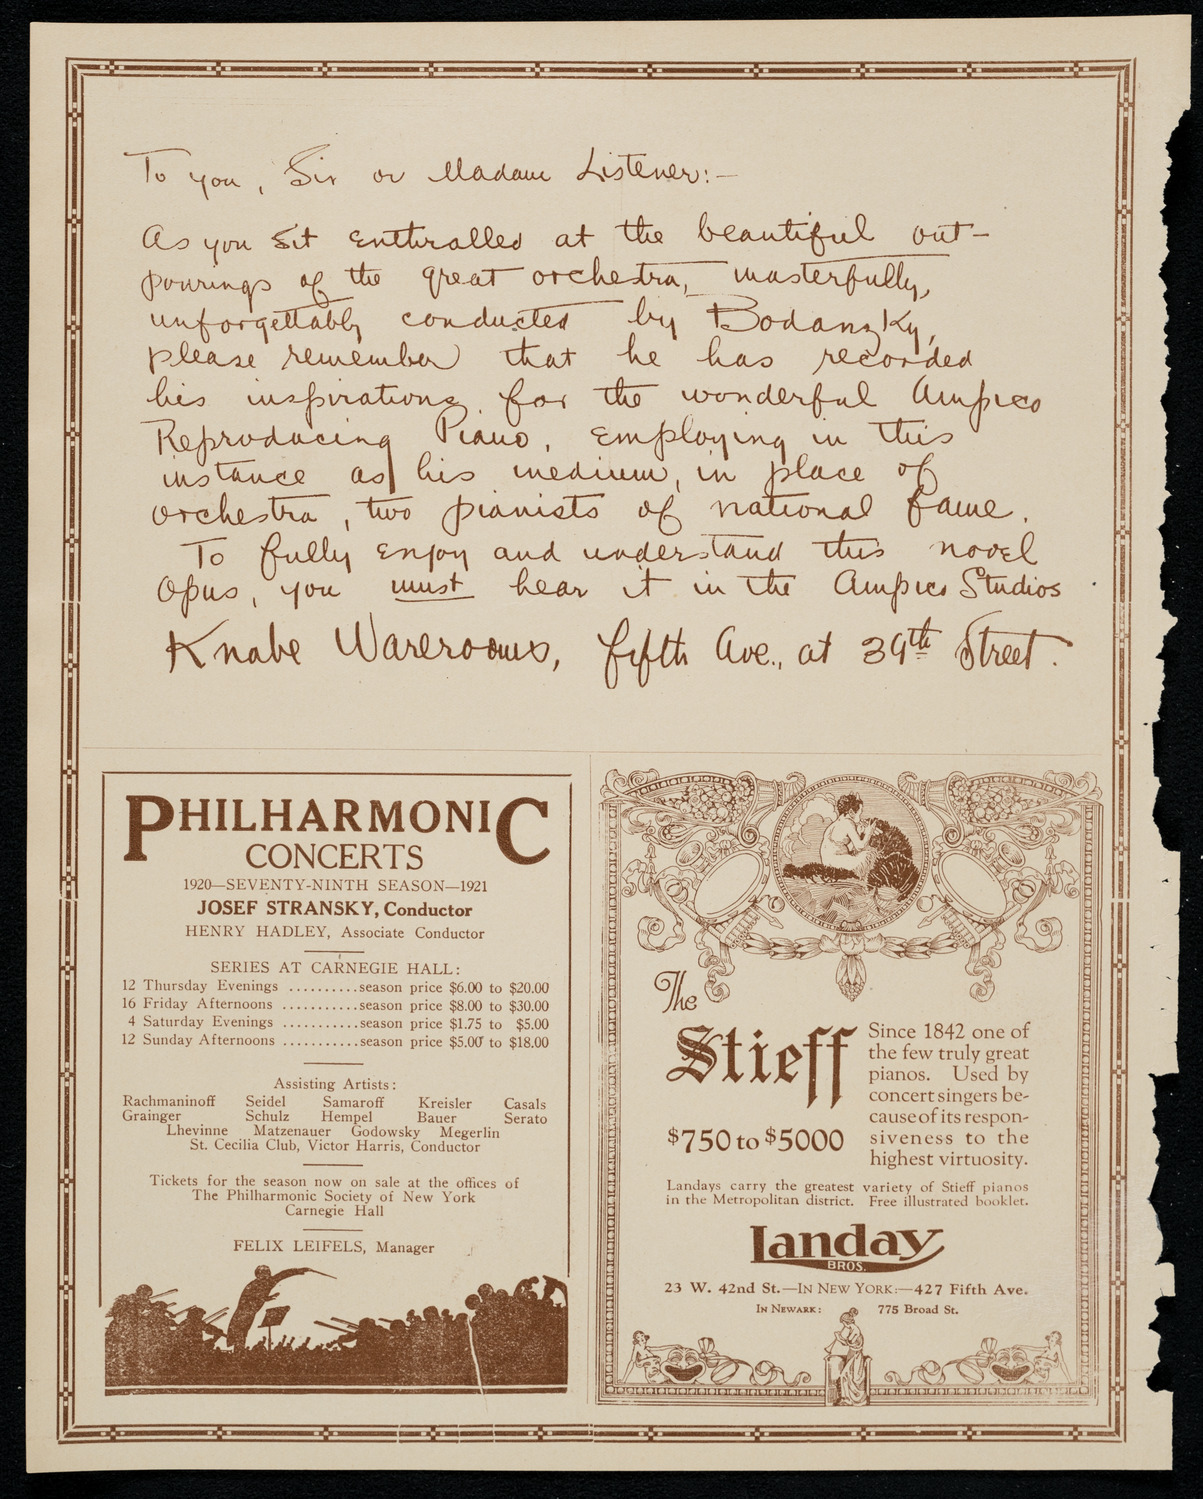 To you, Sir or Madam Listener:—
As you sit enthralled at the beautiful out-
pourings of the great orchestra, masterfully,
unforgettably conducted by Bodanzky,
please remember that he has recorded
his inspirations for the wonderful Ampico
Reproducing Piano, employing in this
instance as his medium, in place of
orchestra, two pianists of national fame.
To fully enjoy and understand this novel
opus, you must hear it in the Ampico Studios
Knabe Warerooms, fifth Ave., at 39th Street.
PHILHARMONIC
CONCERTS
1920—SEVENTY-NINTH SEASON—1921
JOSEF STRANSKY, Conductor
HENRY HADLEY, Associate Conductor
SERIES AT CARNEGIE HALL:
12 Thursday Evenings ..........season price $6.00 to $20.00
16 Friday Afternoons ............season price $8.00 to $30.00
4 Saturday Evenings ...........season price $1.75 to $5.00
12 Sunday Afternoons ...........season price $5.00 to $18.00
Assisting Artists:
Rachmaninoff Seidel Samaroff Kreisler Casals
Grainger Schulz Hempel Bauer Serato
Lhevinne Matzenauer Godowsky Megerlin
St. Cecilia Club, Victor Harris, Conductor
Tickets for the season now on sale at the offices of
The Philharmonic Society of New York
Carnegie Hall
FELIX LEIFELS, Manager
The
Stieff
$750 to $5000
Since 1842 one of
the few truly great
pianos. Used by
concert singers be-
cause of its respon-
siveness to the
highest virtuosity.
Landays carry the greatest variety of Stieff pianos
in the Metropolitan district. Free illustrated booklet.
Landay
BROS.
23 W. 42nd St.—IN NEW YORK:—427 Fifth Ave.
IN NEWARK: 775 Broad St.